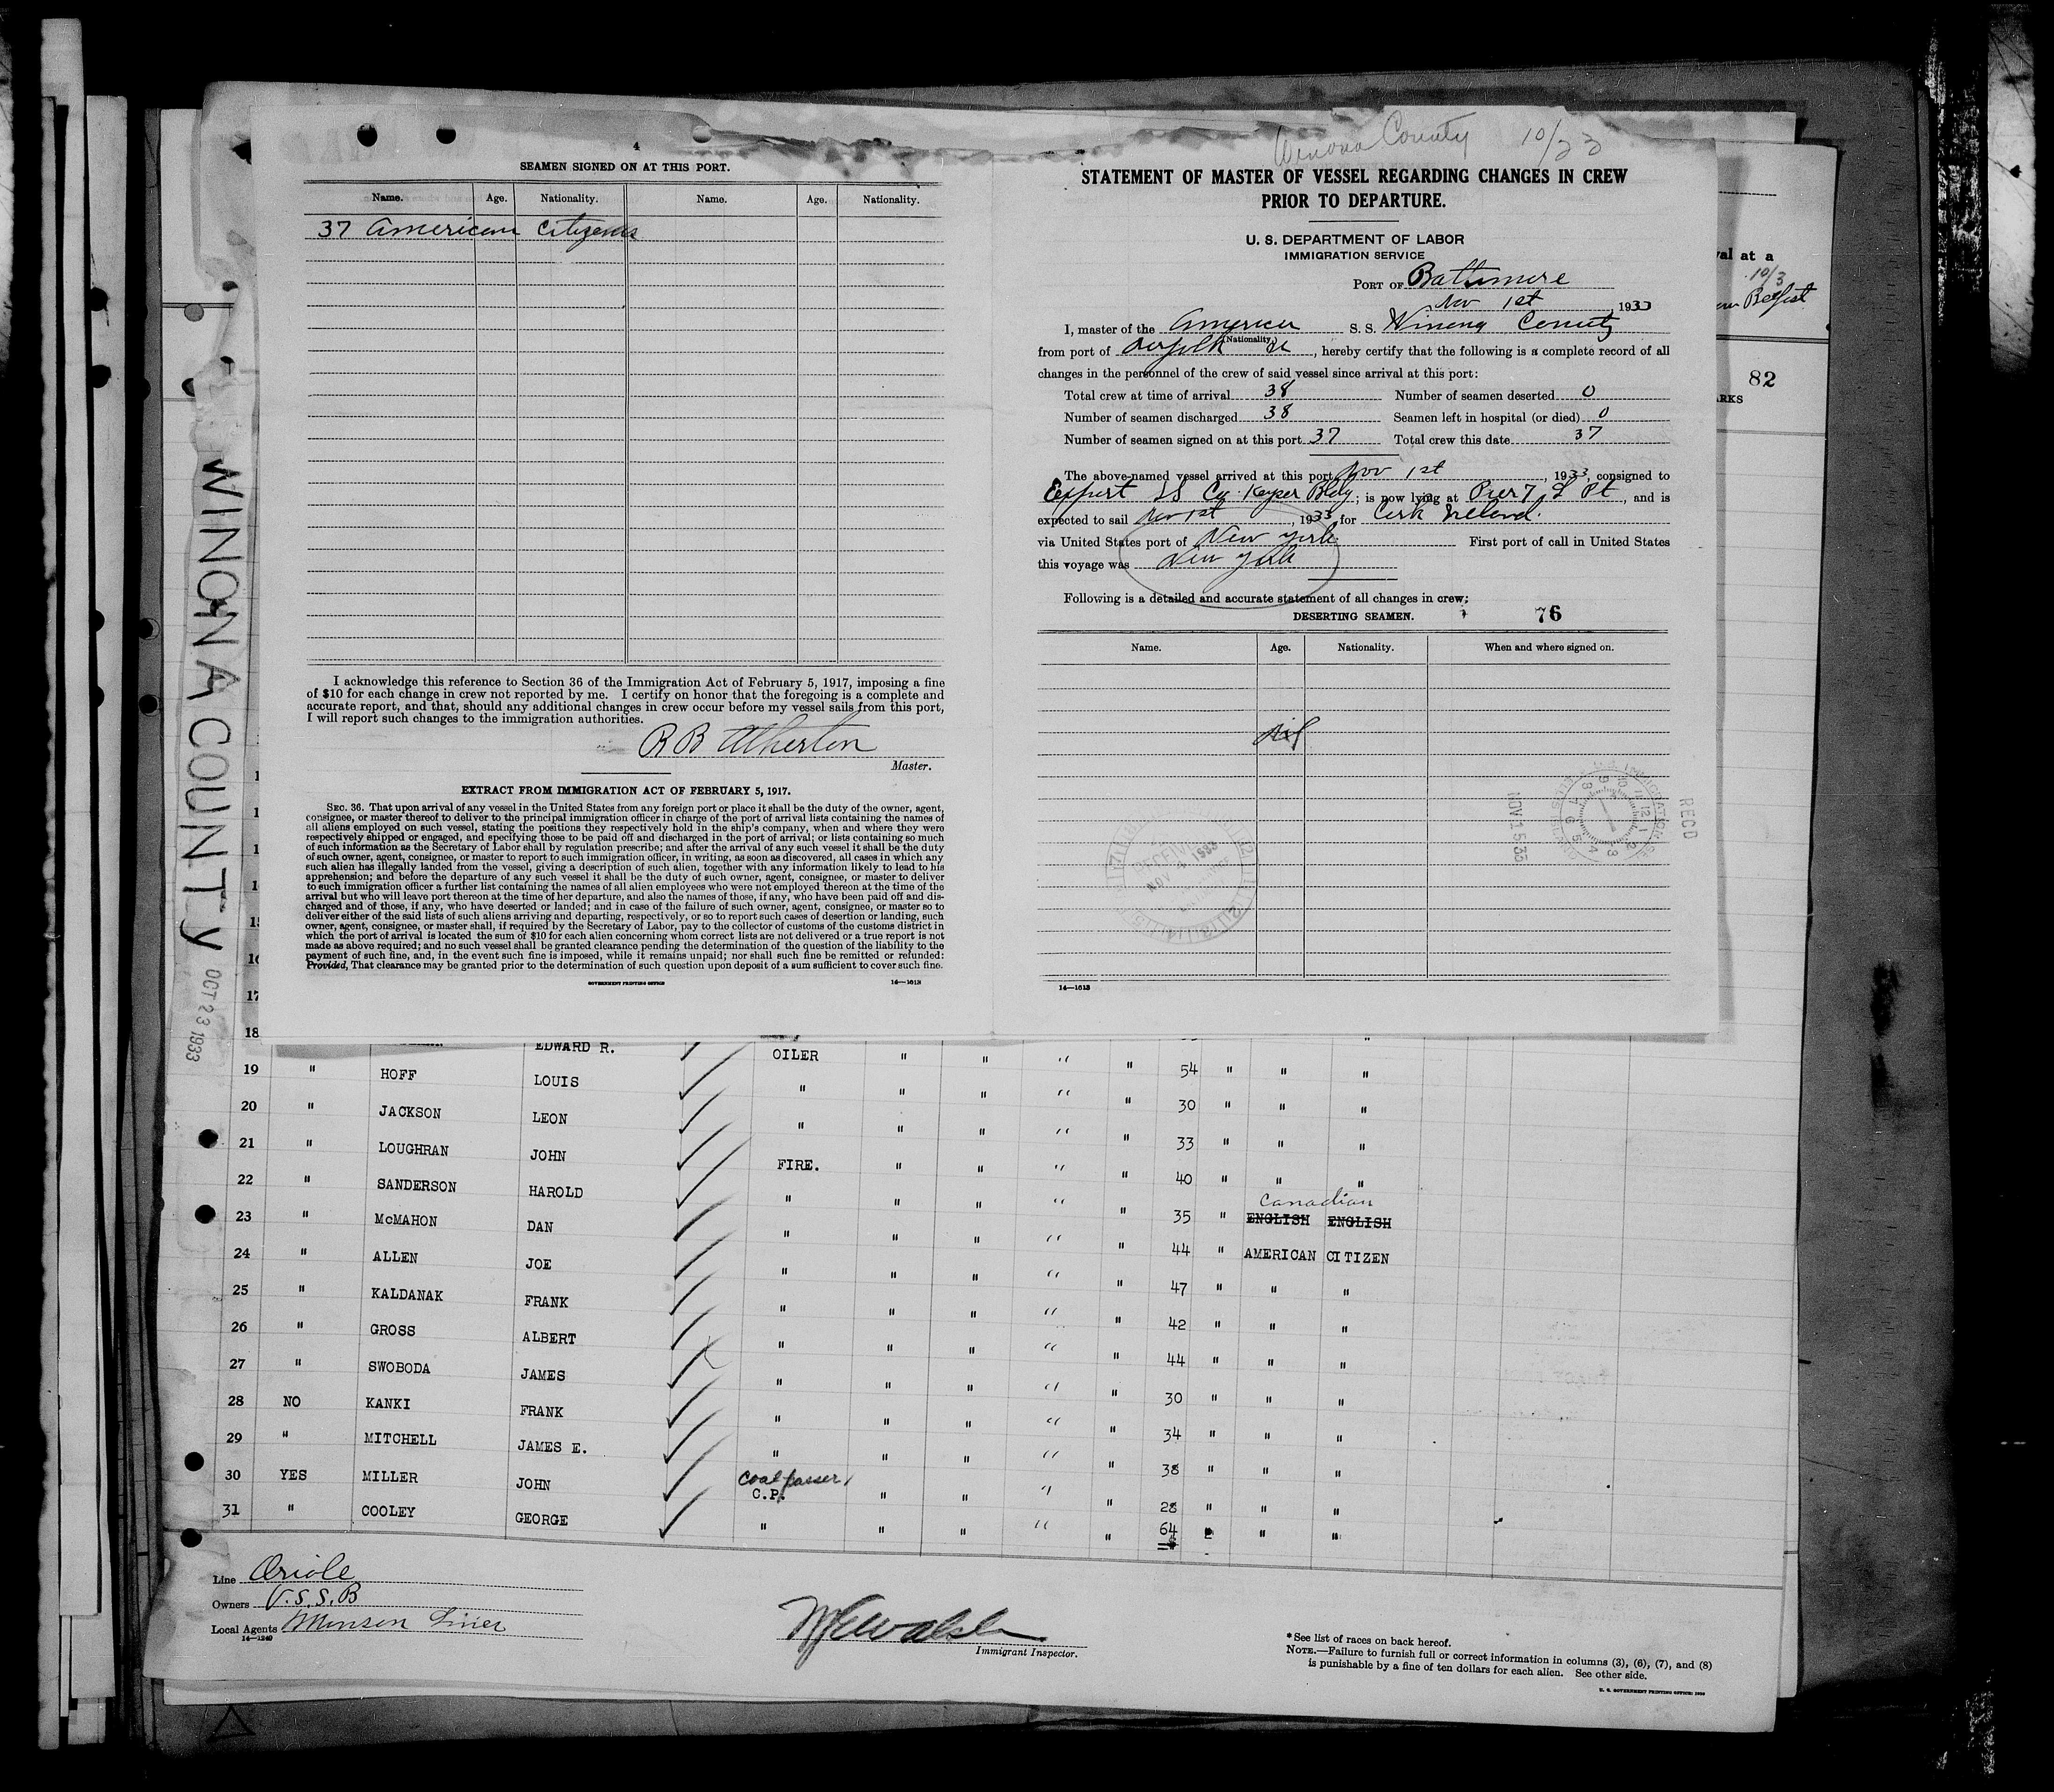 4
SEAMEN SIGNED ON AT THIS PORT.
Name. Age. Nationality. Name. Age. Nationality.
37 American Citizens
I acknowledge this reference to Section 36 of the Immigration Act of February 5, 1917, imposing a fine
of $10 for each change in crew not reported by me. I certify on honor that the foregoing is a complete and
accurate report, and that, should any additional changes in crew occur before my vessel sails from this port,
I will report such changes to the immigration authorities.
R B Atherton
Master.
EXTRACT FROM IMMIGRATION ACT OF FEBRUARY 5, 1917.
SEC. 36. That upon arrival of any vessel in the United States from any foreign port or place it shall be the duty of the owner, agent,
consignee, or master thereof to deliver to the principal immigration officer in charge of the port of arrival lists containing the names of
all aliens employed on such vessel, stating the positions they respectively hold in the ship's company, when and where they were
respectively shipped or engaged, and specifying those to be paid off and discharged in the port of arrival; or lists containing so much
of such information as the Secretary of Labor shall by regulation prescribe; and after the arrival of any such vessel it shall be the duty
of such owner, agent, consignee, or master to report to such immigration officer, in writing, as soon as discovered, all cases in which any
such alien has illegally landed from the vessel, giving a description of such alien, together with any information likely to lead to his
apprehension; and before the departure of any such vessel it shall be the duty of such owner, agent, consignee, or master to deliver
to such immigration officer a further list containing the names of all alien employees who were not employed thereon at the time of the
arrival but who will leave port thereon at the time of her departure, and also the names of those, if any, who have been paid off and dis-
charged and of those, if any, who have deserted or landed; and in case of the failure of such owner, agent, consignee, or master so to
deliver either of the said lists of such aliens arriving and departing, respectively, or so to report such cases of desertion or landing, such
owner, agent, consignee, or master shall, if required by the Secretary of Labor, pay to the collector of customs of the customs district in
which the port of arrival is located the sum of $10 for each alien concerning whom correct lists are not delivered or a true report is not
made as above required; and no such vessel shall be granted clearance pending the determination of the question of the liability to the
payment of such fine, and, in the event such fine is imposed, while it remains unpaid; nor shall such fine be remitted or refunded:
Provided, That clearance may be granted prior to the determination of such question upon deposit of a sum sufficient to cover such fine.
GOVERNMENT PRINTING OFFICE 14—1613
Winona County 10/23
STATEMENT OF MASTER OF VESSEL REGARDING CHANGES IN CREW
PRIOR TO DEPARTURE.
U. S. DEPARTMENT OF LABOR
IMMIGRATION SERVICE
PORT OF Baltimore
Nov 1st, 1933
I, master of the American S. S. Winona County
(Nationality)
from port of Norfolk, hereby certify that the following is a complete record of all
changes in the personnel of the crew of said vessel since arrival at this port:
Total crew at time of arrival 38 Number of seamen deserted 0
Number of seamen discharged 38 Seamen left in hospital (or died) 0
Number of seamen signed on at this port 37 Total crew this date 37
The above-named vessel arrived at this port Nov 1st, 1933, consigned to
Export SS Co Keyser Bldg; is now lying at Pier 7 L Pt, and is
expected to sail Nov 1st, 1933, for Cork Ireland.
via United States port of New York First port of call in United States
this voyage was New York
Following is a detailed and accurate statement of all changes in crew:
DESERTING SEAMEN. 76
Name. Age. Nationality. When and where signed on.
Nil
RECEIVED
NOV 1933
NOV 1 5 35
REC'D
14—1613
val at a
10/3
Belfast
82
RKS
WINONA COUNTY OCT 23 1933
15
16
17
18 EDWARD R. OILER " " " "
19 " HOFF LOUIS " " " " " 54 " " "
20 " JACKSON LEON " " " " " 30 " " "
21 " LOUGHRAN JOHN FIRE. " " " " 33 " " "
22 " SANDERSON HAROLD " " " " " 40 " " "
Canadian
23 " McMAHON DAN " " " " " 35 " ENGLISH ENGLISH
24 " ALLEN JOE " " " " " 44 " AMERICAN CITIZEN
25 " KALDANAK FRANK " " " " " 47 " " "
26 " GROSS ALBERT " " " " " 42 " " "
27 " SWOBODA JAMES " " " " " 44 " " "
28 NO KANKI FRANK " " " " " 30 " " "
29 " MITCHELL JAMES E. " " " " " 34 " " "
38 " " "
30 YES MILLER JOHN coal passer C.P. " " " " 28 " " "
31 " COOLEY GEORGE " " " " " 64 " " "
Line Oriole
Owners U.S.S.B
Local Agents Munson Line
14—1240
Immigrant Inspector.
* See list of races on back hereof.
NOTE.—Failure to furnish full or correct information in columns (3), (6), (7), and (8)
is punishable by a fine of ten dollars for each alien. See other side.
U. S. GOVERNMENT PRINTING OFFICE: 1932